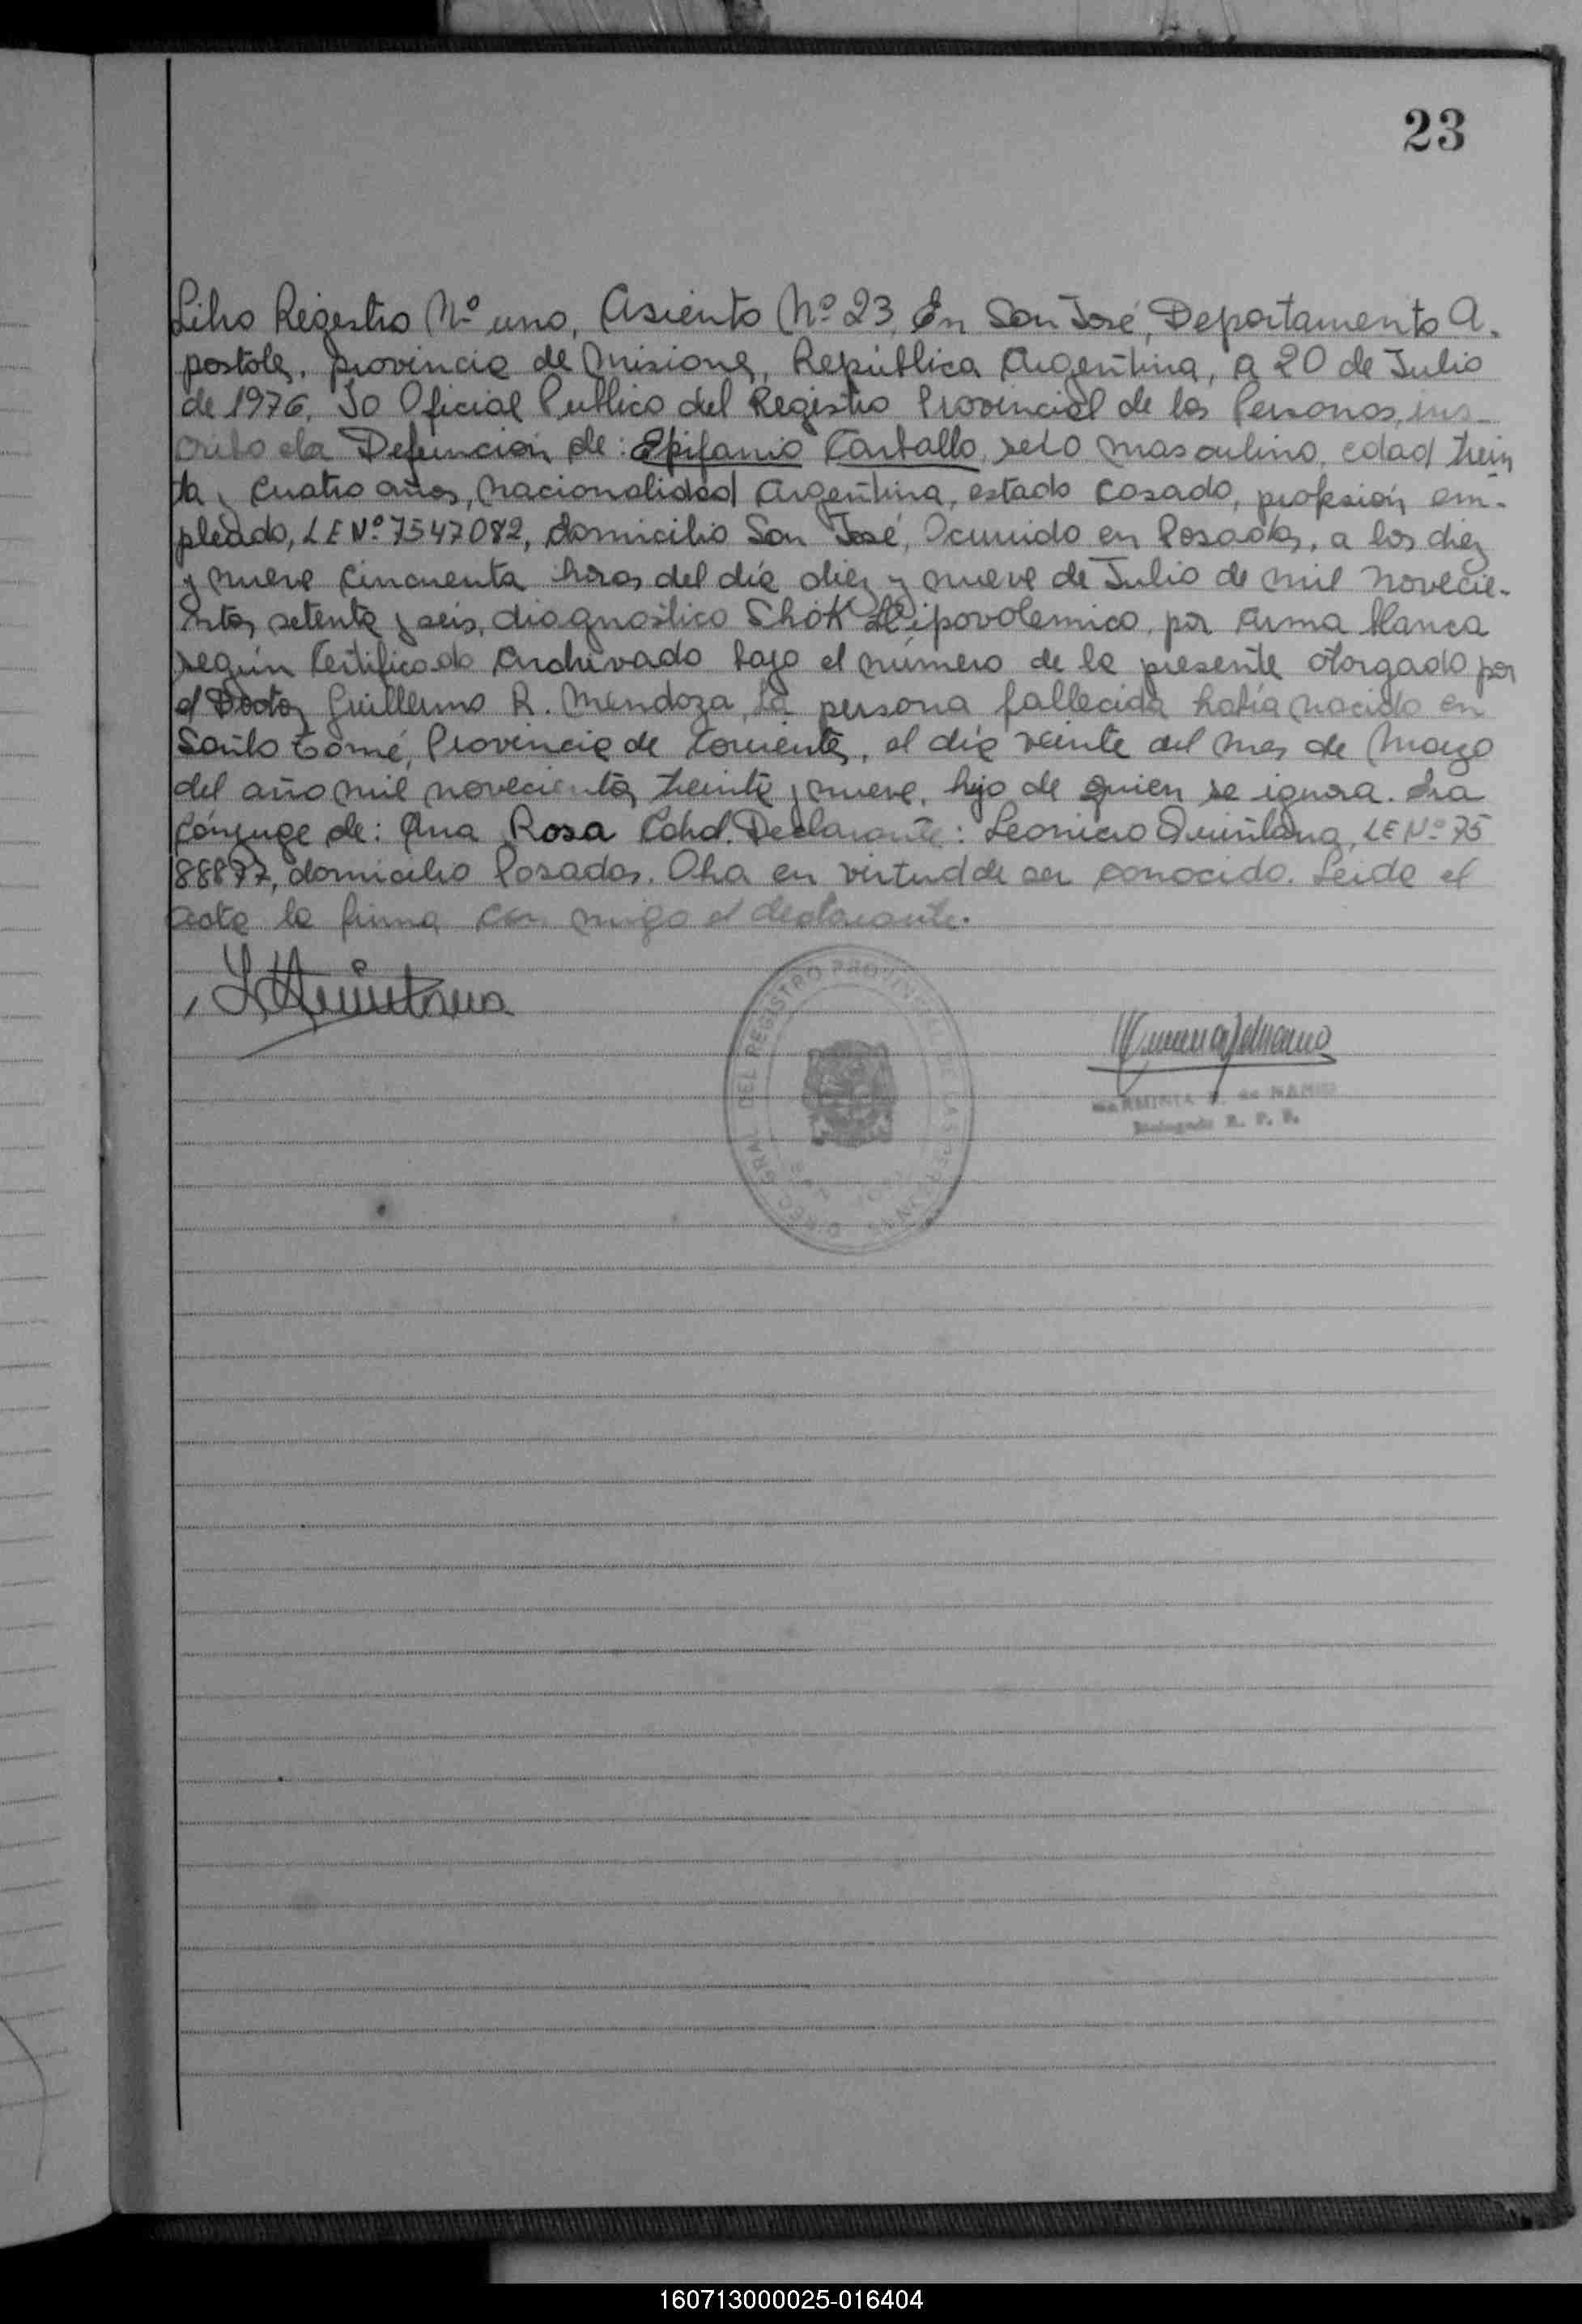 23
Libro Registro Nº uno, Asiento Nº 23. En San José, Departamento A-
postoles, provincia de Misiones, República Argentina, a 20 de Julio
de 1976, Yo Oficial Publico del Registro Provincial de las Personas, ins-
cribo la Defunción de: Epifanio Carballo, sexo masculino, edad trein
ta y cuatro años, nacionalidad Argentina, estado casado, profesión em-
pleado, LE Nº 7547082, domicilio San José, Ocurrido en Posadas, a los diez
y nueve cincuenta horas del día diez y nueve de Julio de mil novecie-
ntos setenta y seis, diagnostico Shok Hipovolemico, por arma blanca
según Certificado Archivado bajo el número de la presente otorgado por
el Doctor Guillermo R. Mendoza, la persona fallecida había nacido en
Santo Tomé, Provincia de Corrientes, el día veinte del mes de Mayo
del año mil novecientos treinta y nueve, hijo de quien se ignora. Era
Cónyuge de: Ana Rosa Declarante: Leonicio Quintana, LE Nº 75
88877, domicilio Posadas. Obra en virtud de ser conocido. Leida el
acta la firma con migo el declarante.
Quintana
DIREC. GRAL. DEL REGISTRO PROVINCIAL DE LAS PERSONAS
SAN JOSE
Delegada R. P. P.
160713000025-016404